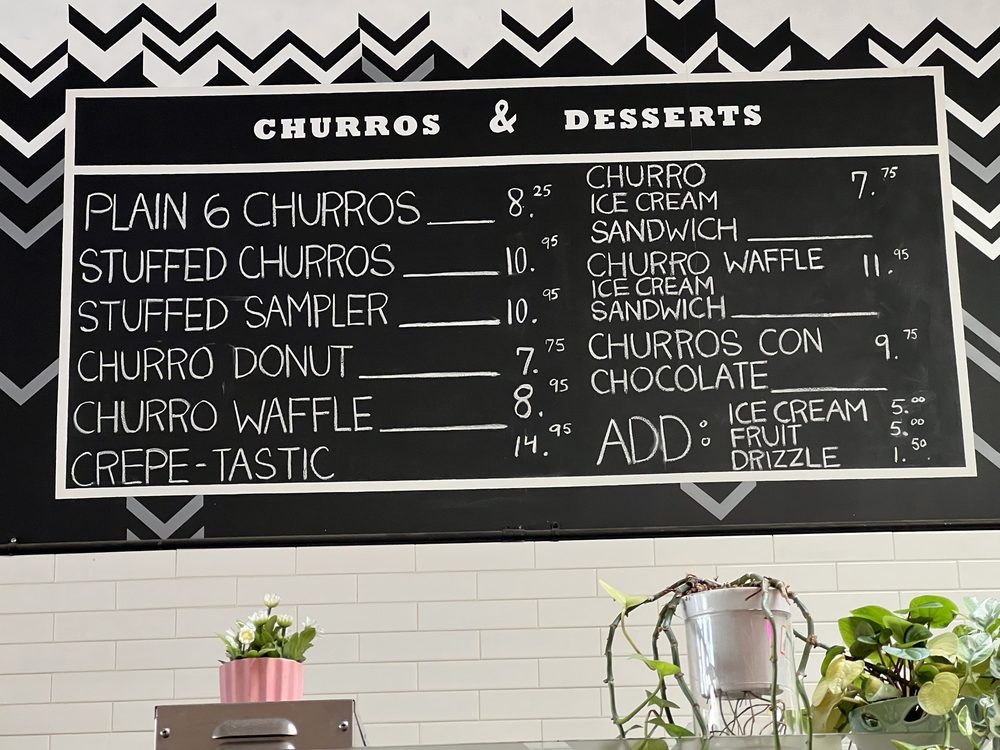 CHURROS & DESSERTS
PLAIN 6 CHURROS 8.25
STUFFED CHURROS 10.95
STUFFED SAMPLER 10.95
CHURRO DONUT 7.75
CHURRO WAFFLE 8.95
CREPE-TASTIC 14.95
CHURRO 7.75
ICE CREAM
SANDWICH
CHURRO WAFFLE 11.95
ICE CREAM
SANDWICH
CHURROS CON 9.75
CHOCOLATE
ADD:
ICE CREAM 5.00
FRUIT 5.00
DRIZZLE 1.50